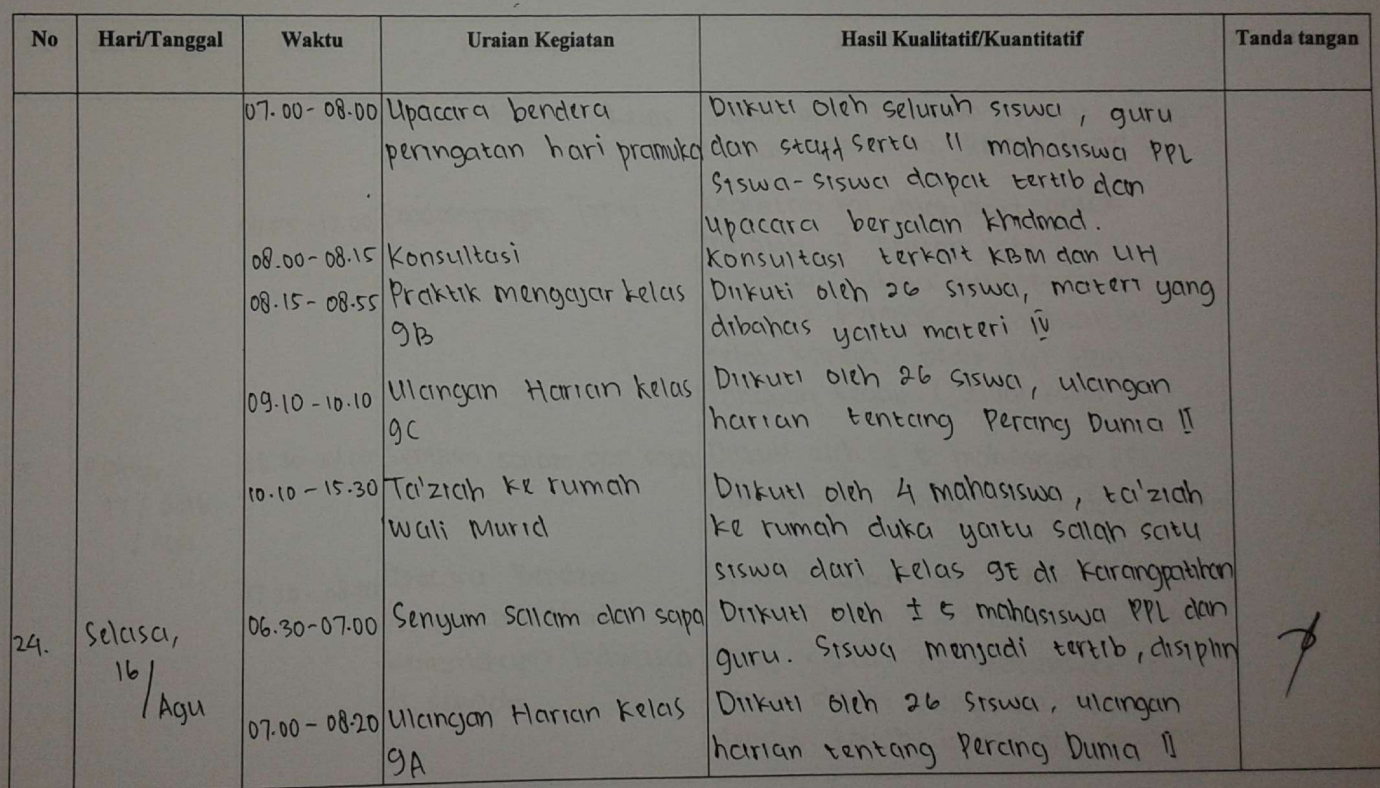 No Hari/Tanggal Waktu Uraian Kegiatan Hasil Kualitatif/Kuantitatif Tanda tangan
07.00 - 08.00 Upacara bendera Diikuti oleh seluruh siswa, guru
peringatan hari pramuka dan staff serta 11 mahasiswa PPL
siswa-siswa dapat tertib dan
upacara berjalan khidmad.
08.00 - 08.15 Konsultasi Konsultasi terkait KBM dan UH
08.15 - 08.55 Praktik mengajar kelas Diikuti oleh 26 siswa, materi yang
9B dibahas yaitu materi IV
09.10 - 10.10 Ulangan Harian kelas Diikuti oleh 26 siswa, ulangan
9C harian tentang Perang Dunia II
10.10 - 15.30 Ta'ziah ke rumah Diikuti oleh 4 mahasiswa, ta'ziah
Wali Murid ke rumah duka yaitu salah satu
siswa dari kelas 9E di Karangpatihan
24. Selasa, 06.30-07.00 Senyum salam dan sapa Diikuti oleh ± 5 mahasiswa PPL dan
16/ guru. Siswa menjadi tertib, disiplin
Agu 07.00 - 08.20 Ulangan Harian Kelas Diikuti oleh 26 siswa, ulangan
9A harian tentang Perang Dunia II